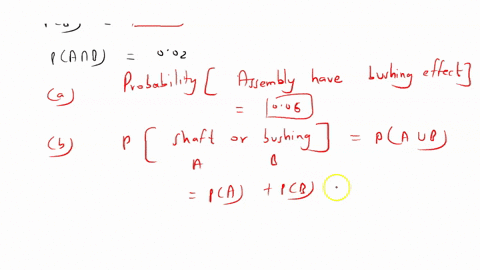 P(A∩B) = 0.02
(a) Probability [ Assembly have bushing effect]
= 0.06
(b) P [ shaft or bushing ] = P(A ∪ B)
A B
= P(A) + P(B)